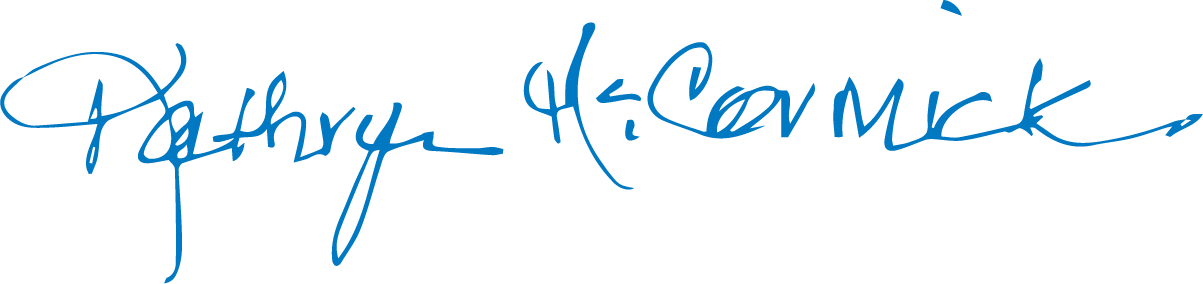 Kathryn McCormick